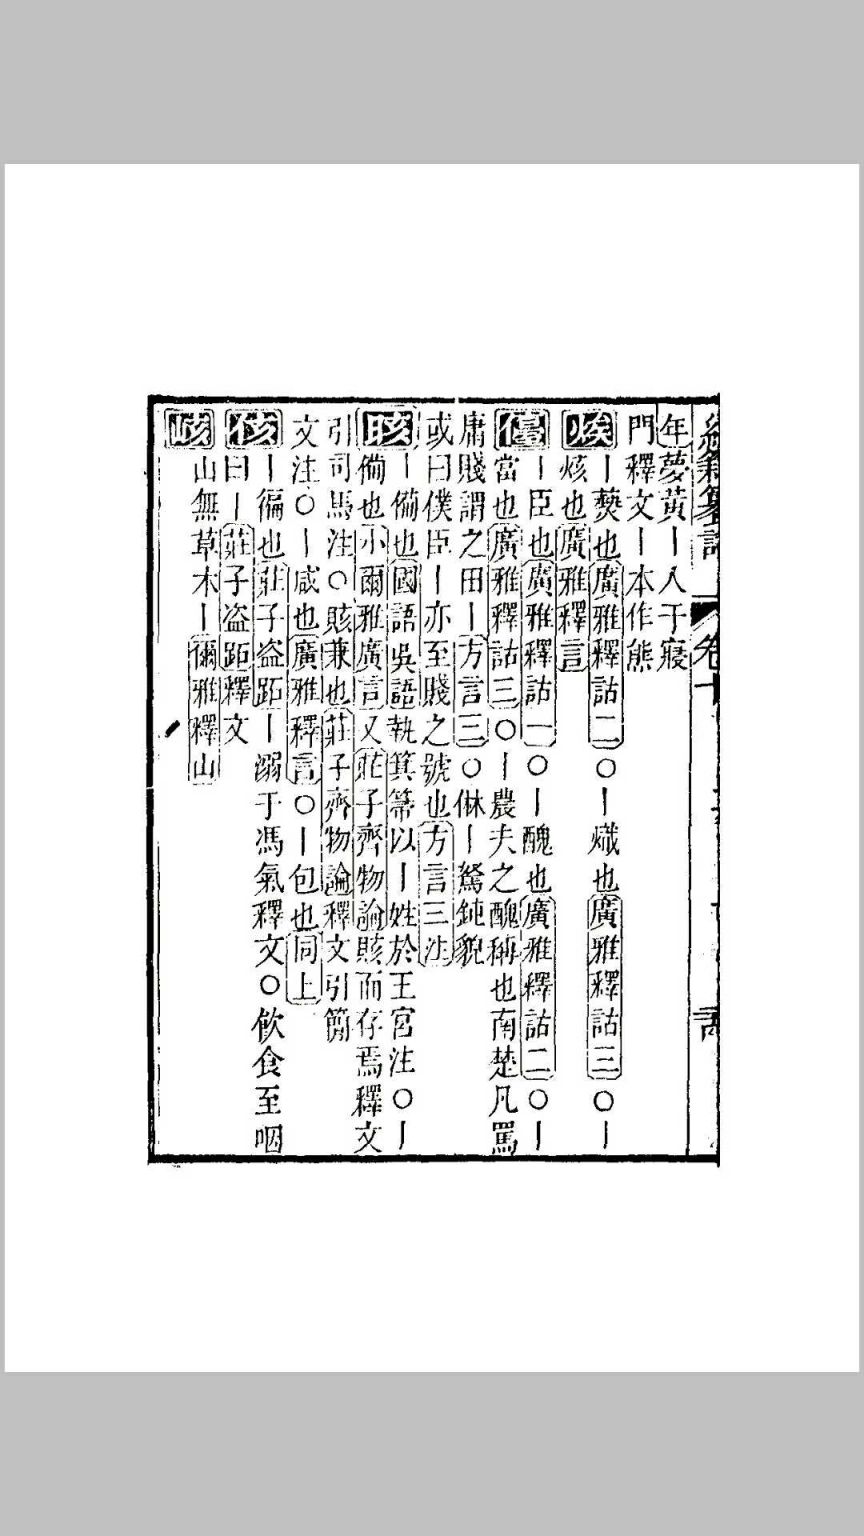 經籍籑詁 卷十
年夢黃丨入于寢
門釋文丨本作熊
丨也廣雅釋詁二○丨熾也廣雅釋詁三○丨
烗也廣雅釋言
儓
丨臣也廣雅釋詁一○丨醜也廣雅釋詁二○丨
當也廣雅釋詁三○丨農夫之醜稱也南楚凡罵
庸賤謂之田丨方言三○㑣丨駑鈍貌
或曰僕臣丨亦至賤之號也方言三注
晐
丨備也國語吳語執箕箒以丨姓於王宮注○丨
備也小爾雅廣言又莊子齊物論賅而存焉釋文
引司馬注○賅兼也莊子齊物論釋文引簡
文注○丨咸也廣雅釋言○丨包也同上
侅
丨徧也莊子盗跖丨溺于馮氣釋文○飲食至咽
曰丨莊子盗跖釋文
峐
山無草木丨爾雅釋山